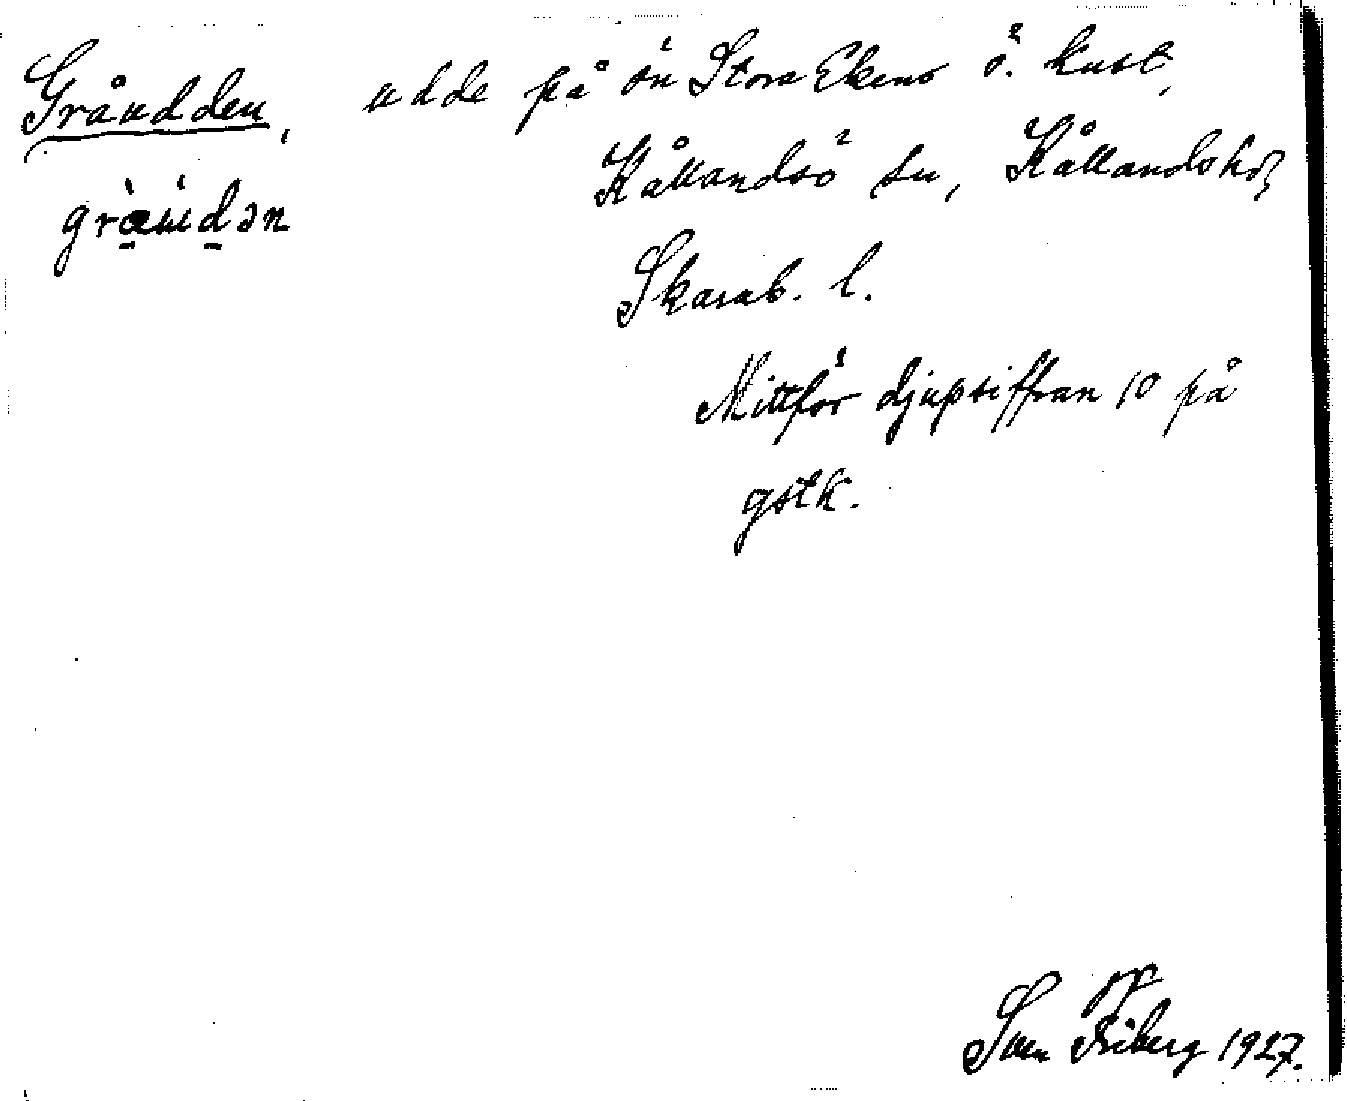 Gråudden, udde på ön Stora Ekens ö. kust,
Kållandsö sn, Kållandshd
Skarab. l.
Mittför djupsiffran 10 på
gstk.
Sven Friberg 1927.